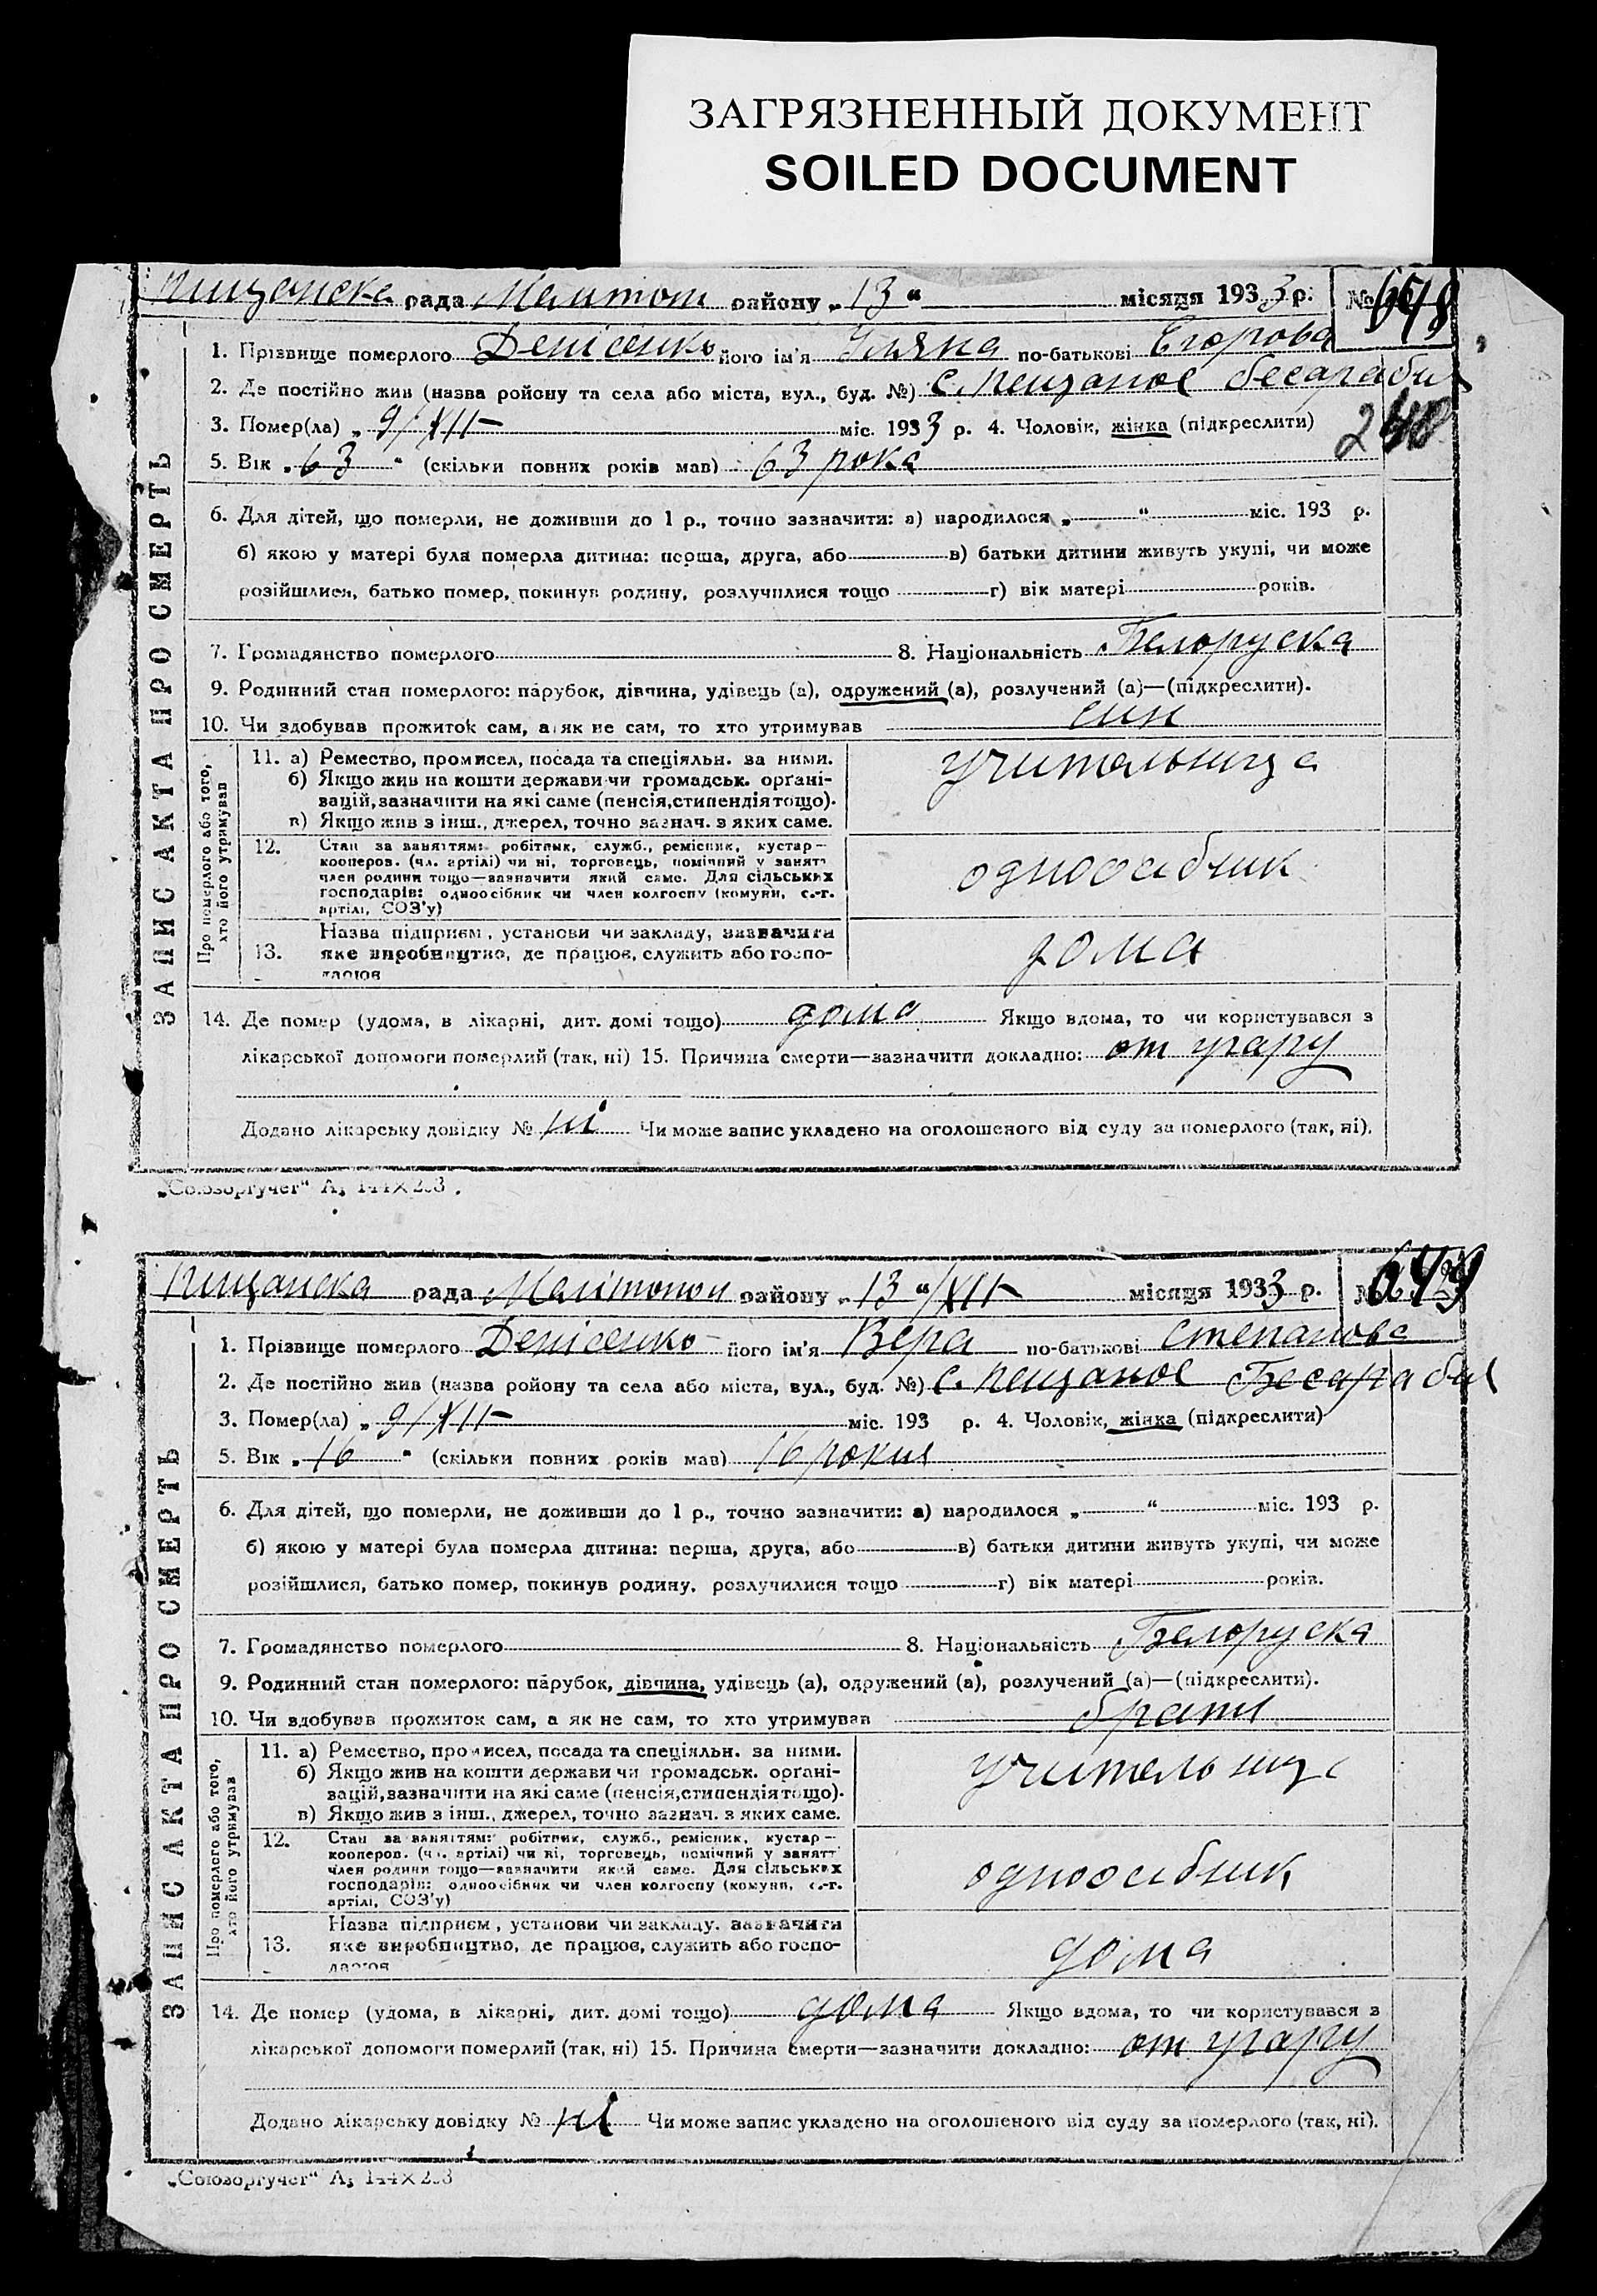 ЗАГРЯЗНЕННЫЙ ДОКУМЕНТ
SOILED DOCUMENT
Пищанска рада Мелитоп району „13“ місяця 1933 р. № 648
1. Прізвище померлого Денісенко його ім'я Уляна по-батькові Егорова
2. Де постійно жив (назва району та села або міста, вул., буд. №) с. Пещаное Бесарабия
3. Помер(ла) „9/XII міс. 1933 р. 4. Чоловік, жінка (підкреслити)
240
5. Вік „63“ (скільки повних років мав) 63 рока
6. Для дітей, що померли, не доживши до 1 р., точно зазначити: а) народилося „ “ міс. 193 р.
б) якою у матері була померла дитина: перша, друга, або в) батьки дитини живуть укупі, чи може
розійшлися, батько помер, покинув родину, розлучилися тощо г) вік матері років.
7. Громадянство померлого 8. Національність Белоруска
9. Родинний стан померлого: парубок, дівчина, удівець (а), одружений (а), розлучений (а)—(підкреслити).
10. Чи здобував прожиток сам, а як не сам, то хто утримував син
ЗАПИС АКТА ПРО СМЕРТЬ
Про померлого або того,
хто його утримував
11. а) Ремество, промисел, посада та спеціяльн. за ними.
б) Якщо жив на кошти держави чи громадськ. орґані-
зацій, зазначити на які саме (пенсія, стипендія тощо).
в) Якщо жив з інш., джерел, точно зазнач. з яких саме.
учительница
12. Стан за заняттям: робітник, служб., ремісник, кустар—
кооперов. (чл. артілі) чи ні, торговець, помічний у занятт
член родини тощо—зазначити який саме. Для сільських
господарів: одноосібник чи член колгоспу (комуни, с.-г.
артілі, СОЗ'у)
одноосибник
13. Назва підприєм, установи чи закладу, зазначити
яке виробництво, де працює, служить або госпо-
дарює
дома
14. Де помер (удома, в лікарні, дит. домі тощо) дома Якщо вдома, то чи користувався з
лікарської допомоги померлий (так, ні) 15. Причина смерти—зазначити докладно: от угару
Додано лікарську довідку № ні Чи може запис укладено на оголошеного від суду за померлого (так, ні).
„Союзоргучет“ А₅ 144×203
Пищанска рада Мелітопол району „13“/XII місяця 1933 р. № 649
1. Прізвище померлого Денісенко його ім'я Вера по-батькові Степанова
2. Де постійно жив (назва району та села або міста, вул., буд. №) с. Пещаное Бесарабия
3. Помер(ла) „9/XII міс. 193 р. 4. Чоловік, жінка (підкреслити)
5. Вік „16“ (скільки повних років мав) 16 рокив
6. Для дітей, що померли, не доживши до 1 р., точно зазначити: а) народилося „ “ міс. 193 р.
б) якою у матері була померла дитина: перша, друга, або в) батьки дитини живуть укупі, чи може
розійшлися, батько помер, покинув родину, розлучилися тощо г) вік матері років.
7. Громадянство померлого 8. Національність Белоруска
9. Родинний стан померлого: парубок, дівчина, удівець (а), одружений (а), розлучений (а)—(підкреслити).
10. Чи здобував прожиток сам, а як не сам, то хто утримував
ЗАПИС АКТА ПРО СМЕРТЬ
Про померлого або того,
хто його утримував
11. а) Ремество, промисел, посада та спеціяльн. за ними.
б) Якщо жив на кошти держави чи громадськ. орґані-
зацій, зазначити на які саме (пенсія, стипендія тощо).
в) Якщо жив з інш., джерел, точно зазнач. з яких саме.
учительница
12. Стан за заняттям: робітник, служб., ремісник, кустар—
кооперов. (чл. артілі) чи ні, торговець, помічний у занятт
член родини тощо—зазначити який саме. Для сільських
господарів: одноосібник чи член колгоспу (комуни, с.-г.
артілі, СОЗ'у)
одноосибник
13. Назва підприєм, установи чи закладу, зазначити
яке виробництво, де працює, служить або госпо-
дарює
дома
14. Де помер (удома, в лікарні, дит. домі тощо) дома Якщо вдома, то чи користувався з
лікарської допомоги померлий (так, ні) 15. Причина смерти—зазначити докладно: от угару
Додано лікарську довідку № ні Чи може запис укладено на оголошеного від суду за померлого (так, ні).
„Союзоргучет“ А₅ 144×203